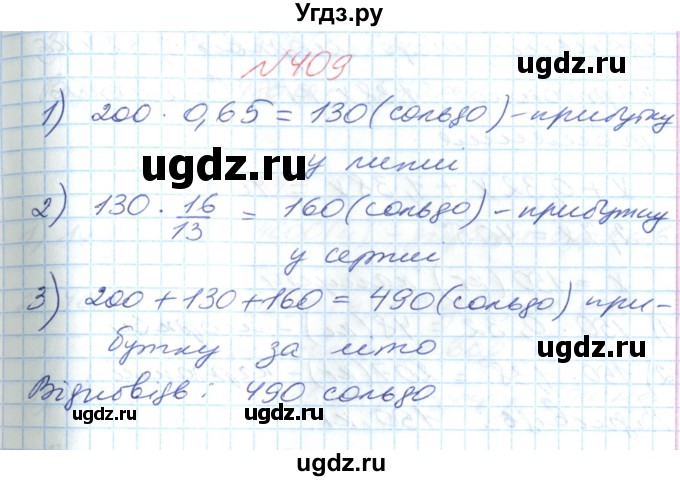 Угдз.ру
№409
1) 200 · 0,65 = 130 (сольдо) - прибутку
у липні
2) 130 · 16/13 = 160 (сольдо) - прибутку
у серпні
3) 200 + 130 + 160 = 490 (сольдо) при-
бутку за літо
Відповідь: 490 сольдо
ugdz.ru
ugdz.ru
ugdz.ru
ugdz.ru
ugdz.ru
ugdz.ru
ugdz.ru